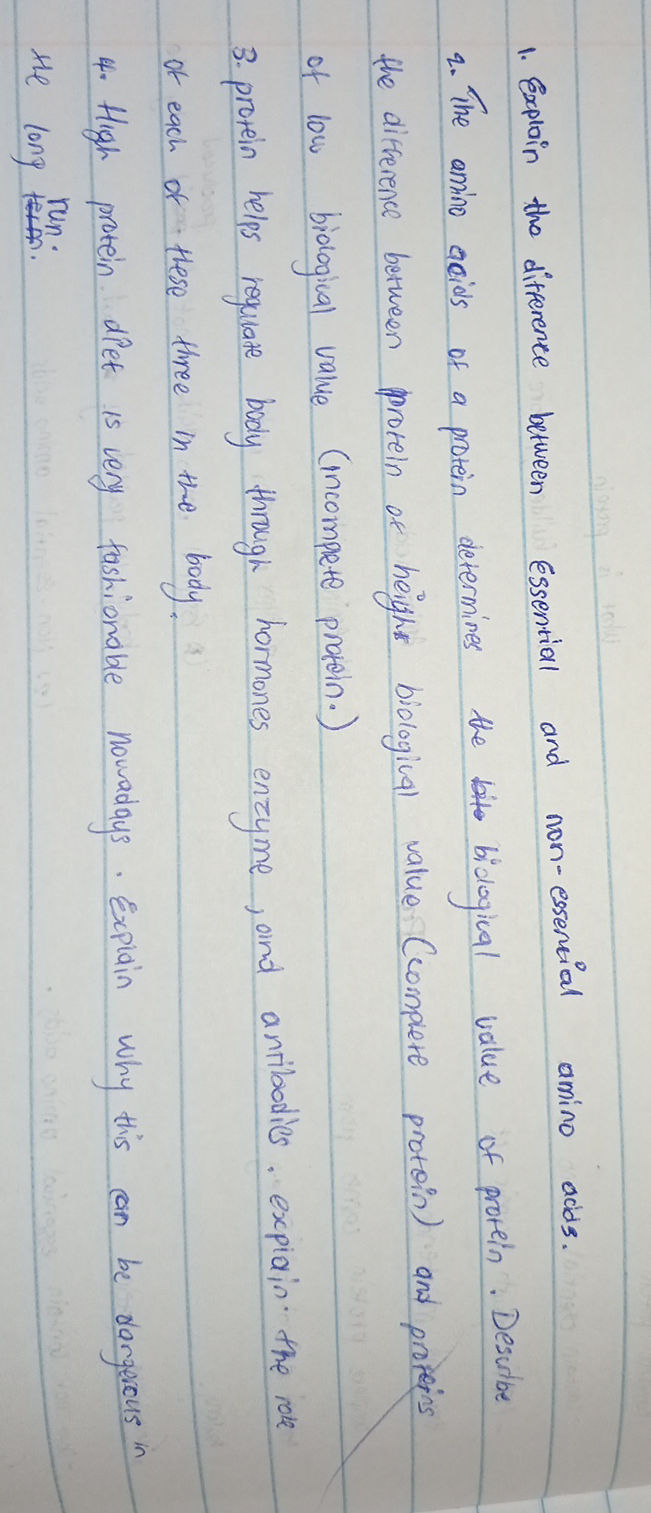 1. Explain the difference between essential and non-essential amino acids.
2. The amino acids of a protein determines the biological value of protein. Describe
the difference between protein of heigh biological value (complete protein) and proteins
of low biological value (incomplete protein.)
3. protein helps regulate body through hormones enzyme, and antibodies. explain the role
of each of these three in the body.
4. High protein diet is very fashionable nowadays. Explain why this can be dangerous in
the long run.